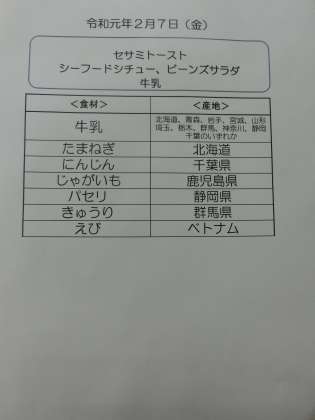 令和元年２月７日（金）
セサミトースト
シーフードシチュー、ビーンズサラダ
牛乳
＜食材＞ ＜産地＞
牛乳 北海道、青森、岩手、宮城、山形
埼玉、栃木、群馬、神奈川、静岡
千葉のいずれか
たまねぎ 北海道
にんじん 千葉県
じゃがいも 鹿児島県
パセリ 静岡県
きゅうり 群馬県
えび ベトナム